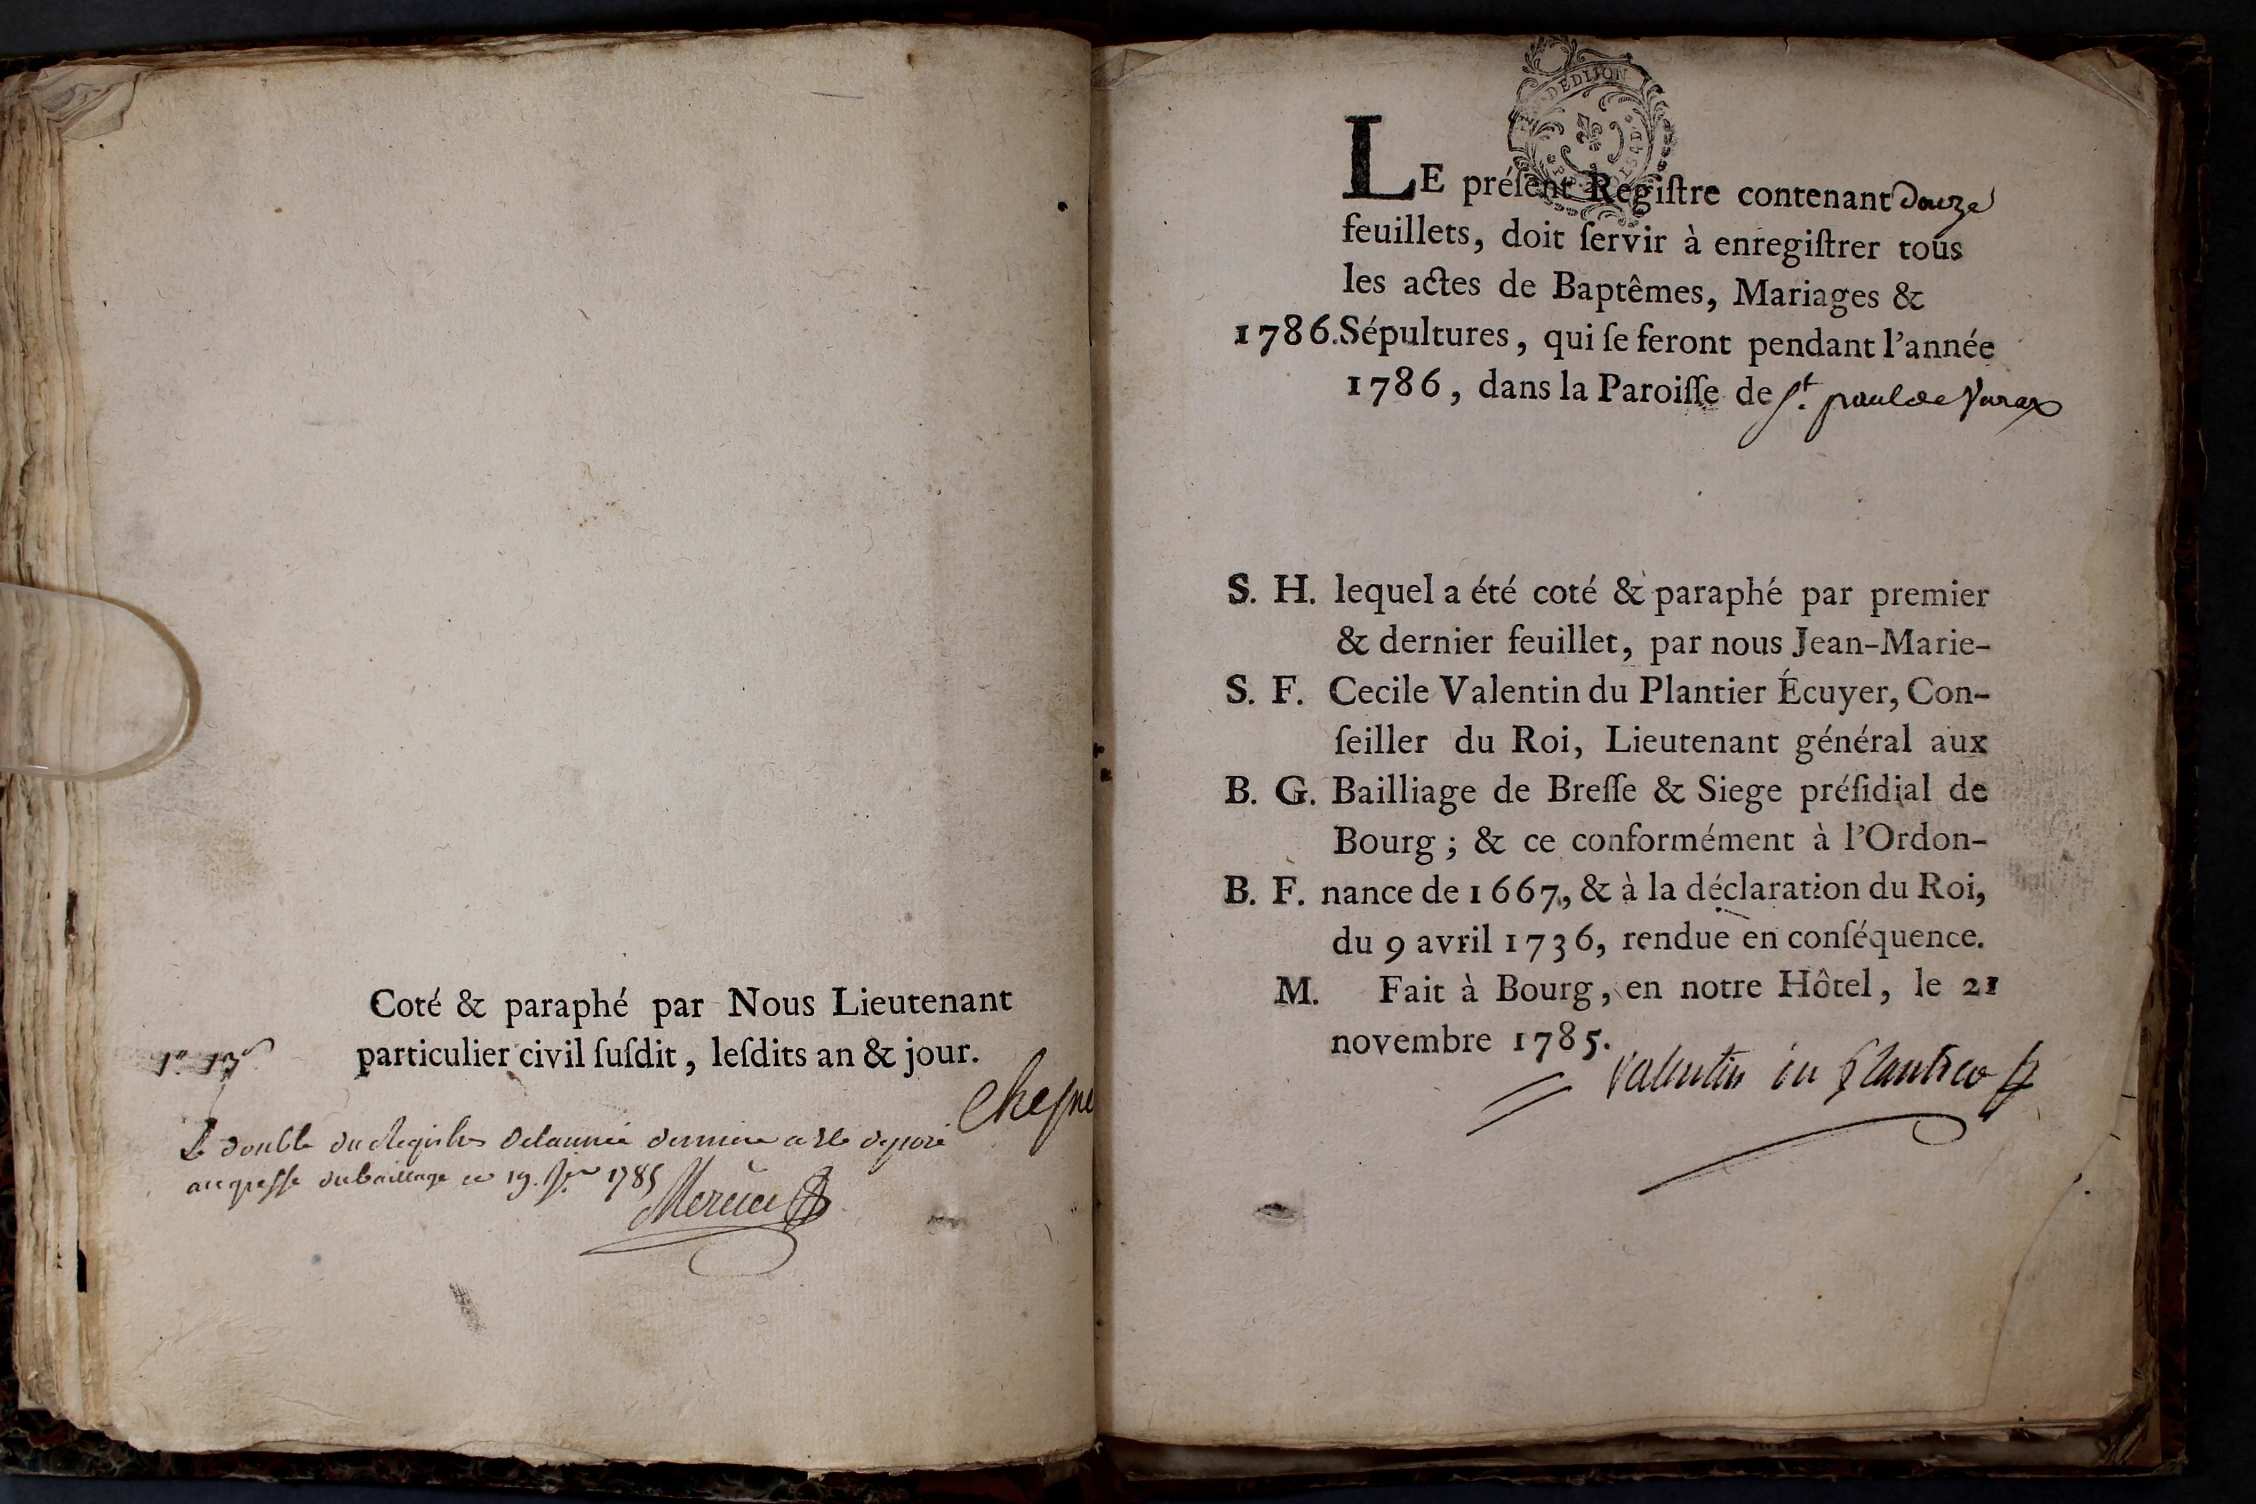 Coté & paraphé par Nous Lieutenant
particulier civil ſuſdit, leſdits an & jour.
Le double du Registre de l'année derniere a été deposé
au greffe du bailliage ce 19. 1785
LE préſent Regiſtre contenant douze
feuillets, doit ſervir à enregiſtrer tous
les actes de Baptêmes, Mariages &
1786. Sépultures, qui ſe feront pendant l'année
1786, dans la Paroiſſe de St. paul de Varax
S. H. lequel a été coté & paraphé par premier
& dernier feuillet, par nous Jean-Marie-
S. F. Cecile Valentin du Plantier Écuyer, Con-
ſeiller du Roi, Lieutenant général aux
B. G. Bailliage de Breſſe & Siege préſidial de
Bourg; & ce conformément à l'Ordon-
B. F. nance de 1667, & à la déclaration du Roi,
du 9 avril 1736, rendue en conſéquence.
M. Fait à Bourg, en notre Hôtel, le 21
novembre 1785.
Valentin du Plantier